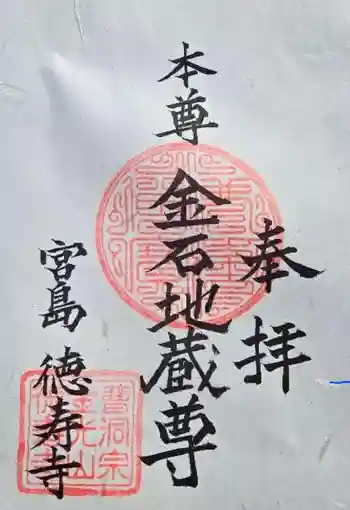 奉拝
本尊
金石地蔵尊
宮島 徳寿寺
曹洞宗